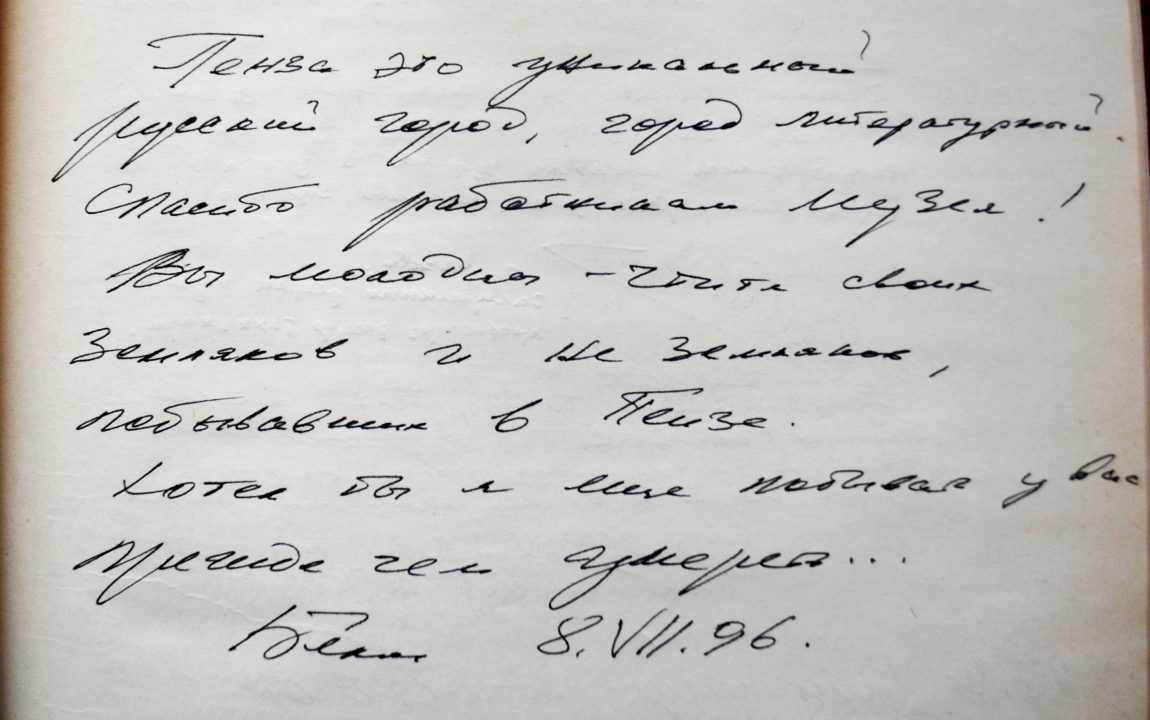 Пенза это уникальный
русский город, город литературный.
Спасибо работникам музея!
Вы молодцы - чтите своих
земляков и не земляков,
побывавших в Пензе.
Хотел бы я еще побывать у вас
прежде чем умереть...
8.VII.96.